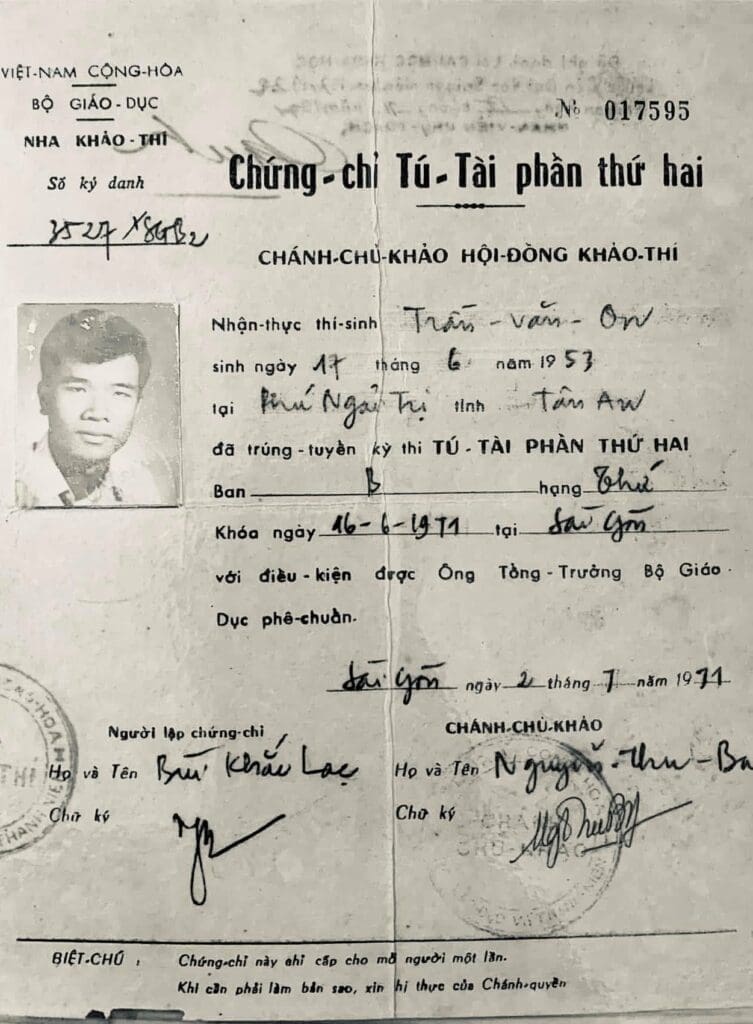 VIỆT-NAM CỘNG-HÒA
BỘ GIÁO-DỤC
NHA KHẢO-THÍ
Số ký danh
3527 XSGB2
№ 017595
Chứng-chỉ Tú-Tài phần thứ hai
CHÁNH-CHỦ-KHẢO HỘI-ĐỒNG KHẢO-THÍ
Nhận-thực thí-sinh Trần-văn-On
sinh ngày 17 tháng 6 năm 1953
tại Phú Ngãi Trị tỉnh Tân An
đã trúng-tuyển kỳ thi TÚ-TÀI PHẦN THỨ HAI
Ban B hạng Thứ
Khóa ngày 16-6-1971 tại Sài Gòn
với điều-kiện được Ông Tổng-Trưởng Bộ Giáo
Dục phê-chuẩn.
Sài Gòn ngày 2 tháng 7 năm 1971
Người lập chứng-chỉ
Họ và Tên Bùi Khắc Lạc
Chữ ký
CHÁNH-CHỦ-KHẢO
Họ và Tên Nguyễn-Thu-Ba
Chữ ký
BIỆT-CHÚ : Chứng-chỉ này chỉ cấp cho mỗ người một lần.
Khi cần phải làm bản sao, xin hị thực của Chánh-quyền